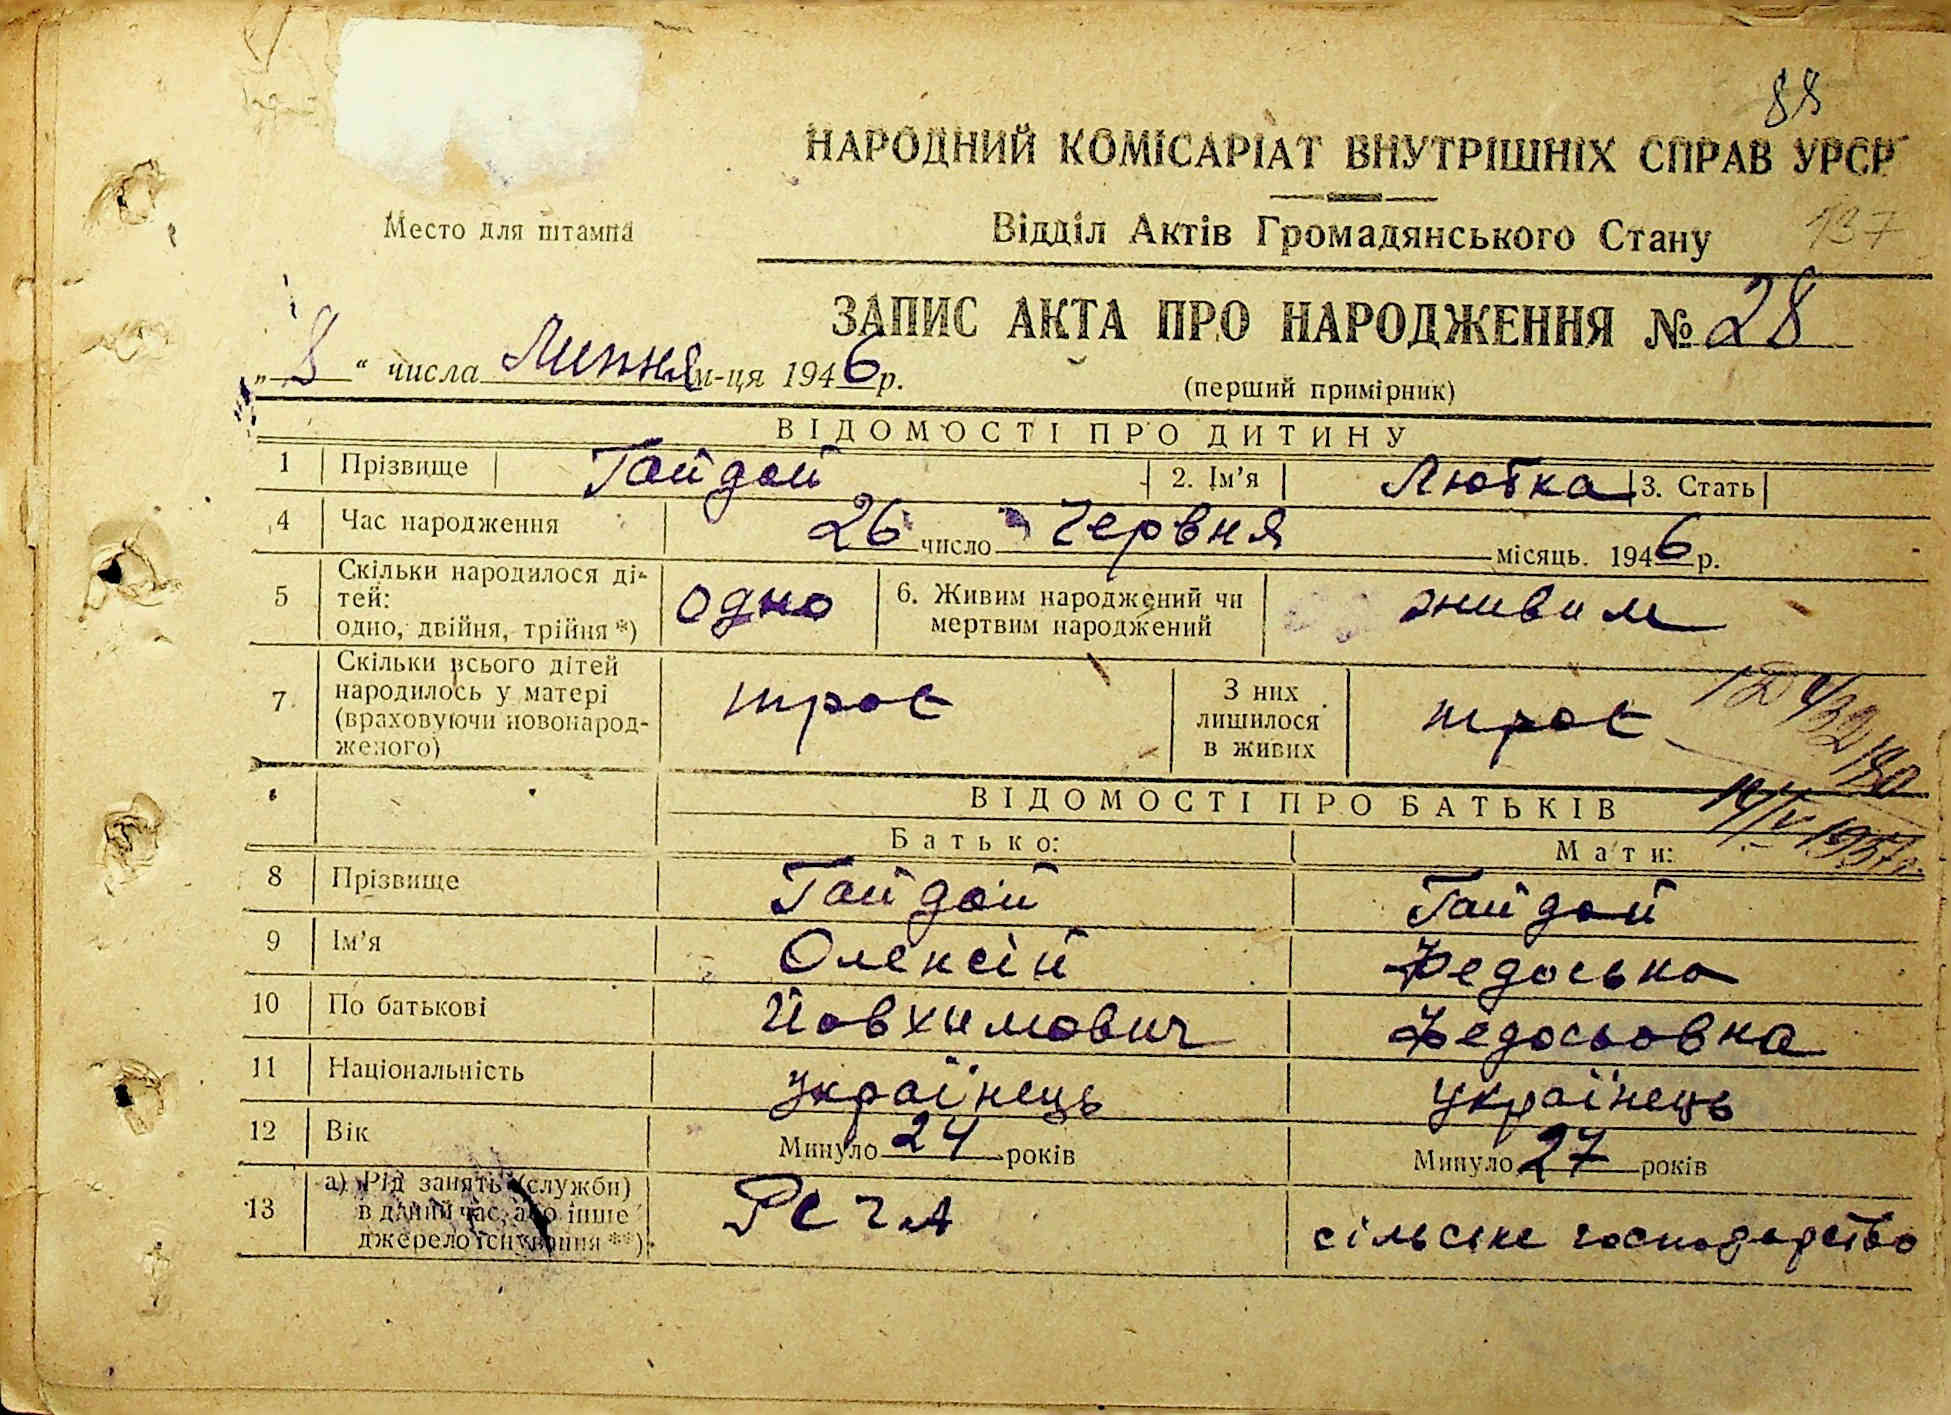 88
НАРОДНИЙ КОМІСАРІАТ ВНУТРІШНІХ СПРАВ УРСР
Место для штампа
Відділ Актів Громадянського Стану
137
ЗАПИС АКТА ПРО НАРОДЖЕННЯ № 28
„8“ числа Липня м-ця 1946 р.
(перший примірник)
ВІДОМОСТІ ПРО ДИТИНУ
1 Прізвище Гайдай 2. Ім'я Любка 3. Стать
4 Час народження 26 число Червня місяць 1946 р.
5 Скільки народилося ді-
тей:
одно, двійня, трійня *) одно
6. Живим народжений чи
мертвим народжений живим
7 Скільки всього дітей
народилось у матері
(враховуючи новонарод-
женого) троє
З них
лишилося
в живих троє
ВІДОМОСТІ ПРО БАТЬКІВ
Батько: Мати:
8 Прізвище Гайдай Гайдай
9 Ім'я Олексій Федоська
10 По батькові Йовхимович Федосьовна
11 Національність Українець Українець
12 Вік Минуло 24 років Минуло 27 років
13 а) Рід занять (служби)
в даний час, або інше
джерело існування **) РСЧА сільське господарство